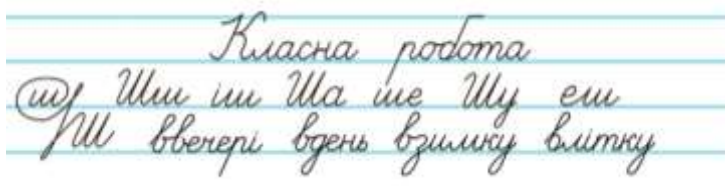 Класна робота
ш Шш іш Ша ше Шу еш
Ш ввечері вдень взимку влітку